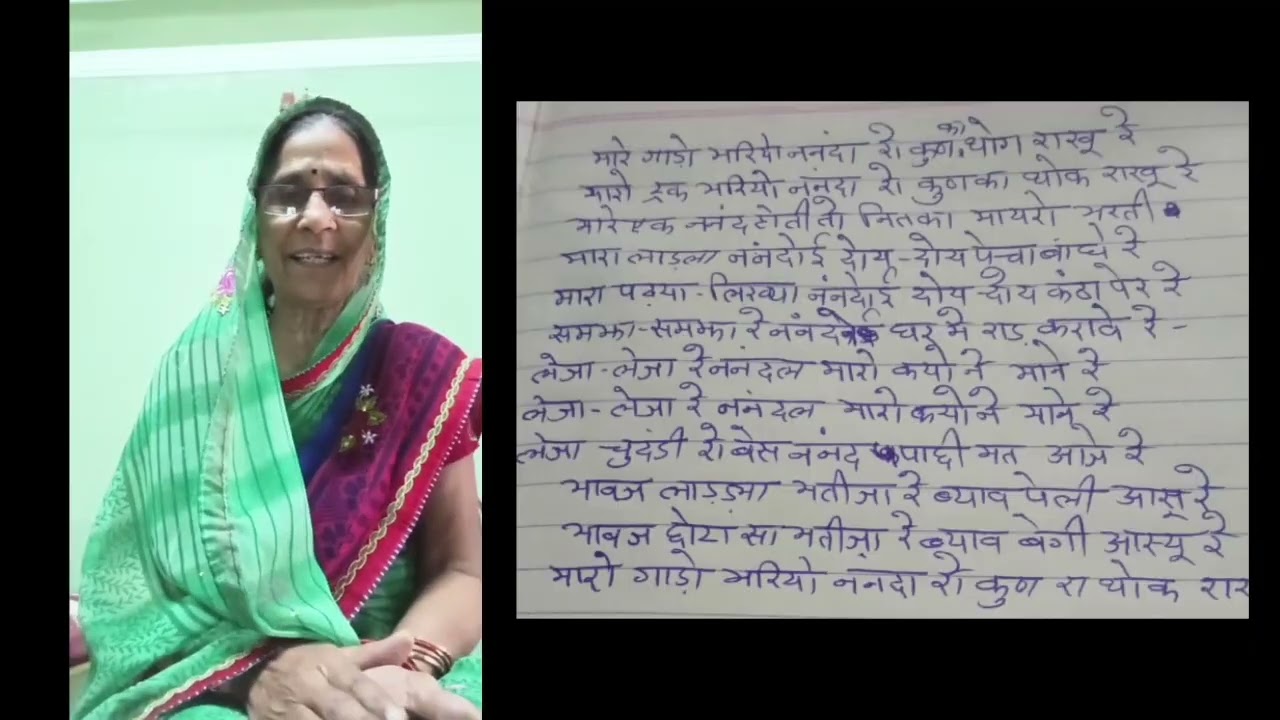 मारे गाडो भरियो ननंदा रो कुण को थोग राखू रे
मारो ट्रक भरियो ननंदा रो कुण का थोक राखू रे
मारे एक ननंद होती तो नितका मायरो भरती
मारा लाड़ला ननंदोई दोय-दोय पेचा बांधे रे
मारा पढ़या-लिख्या ननंदोई दोय-दोय कंठा पेर रे
समझा-समझा रे घर मे राड़ करावे रे -
लेजा-लेजा रे ननंदल मारो कयो ने माने रे
लेजा-लेजा रे ननंदल मारो कयो ने माने रे
लेजा चुदंडी रो बेस ननंद पाछी मत आजे रे
भावज लाड़ला भतीजा रे ब्याव पेली आसू रे
भावज छोटा सा भतीजा रे ब्याव बेगी आस्यू रे
मारो गाडो भरियो ननदा रो कुण रा थोक